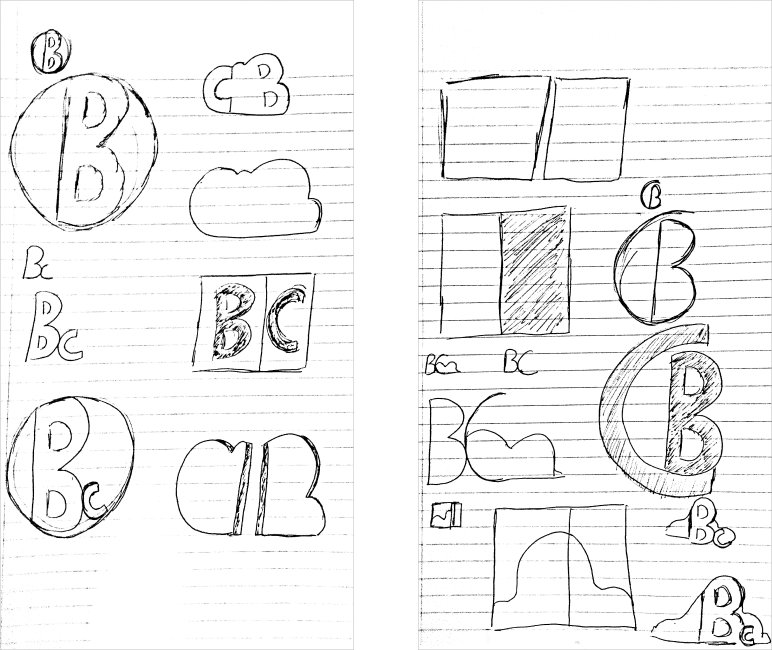 B
CB
B
Bc
Bc
BC
Bc
B
B
CB
BC
BC
BC
Bc
Bc